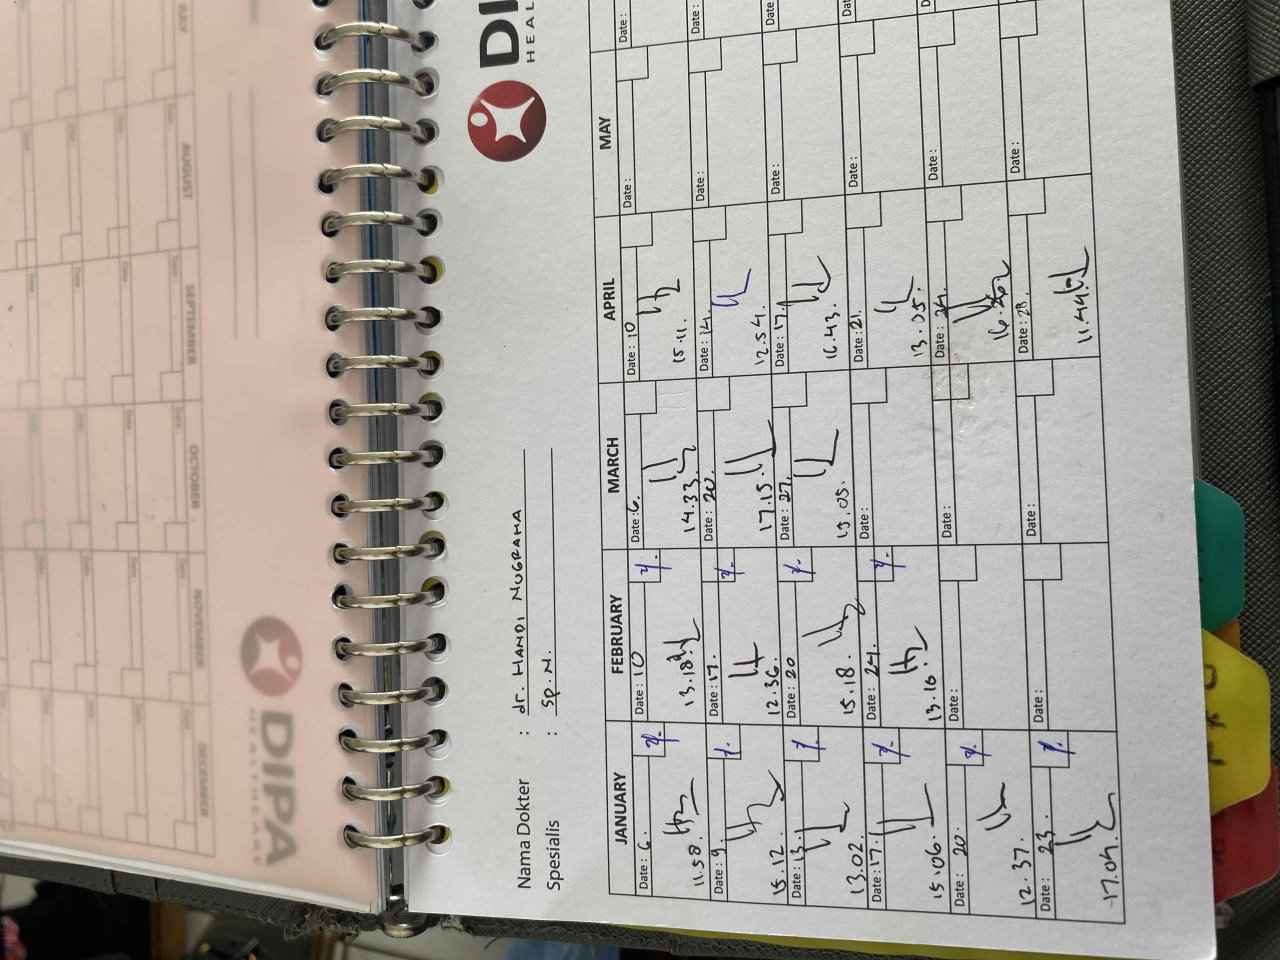 DIPA
HEAL
Nama Dokter : dr. HANDI NUGRAHA
Spesialis : Sp. N.
JANUARY FEBRUARY MARCH APRIL MAY
Date: 6. Date: 10 Date: 6. Date: 10 Date: Date:
11.58. 13.18. 14.33. 15.11.
Date: 9. Date: 17. Date: 20. Date: 14. Date: Date:
15.12. 12.36. 17.15. 12.54.
Date: 13. Date: 20 Date: 27. Date: 17. Date:
13.02. 15.18. 13.05. 16.43.
Date: 17. Date: 24. Date: Date: 21. Date:
15.06. 13.16. 13.05.
Date: 20. Date: Date: Date: 24. Date:
12.37.
Date: 23. Date: Date: Date: 28. Date:
17.04. 11.44.
AUGUST
SEPTEMBER
OCTOBER
NOVEMBER
DECEMBER
DIPA
HEALTHCARE